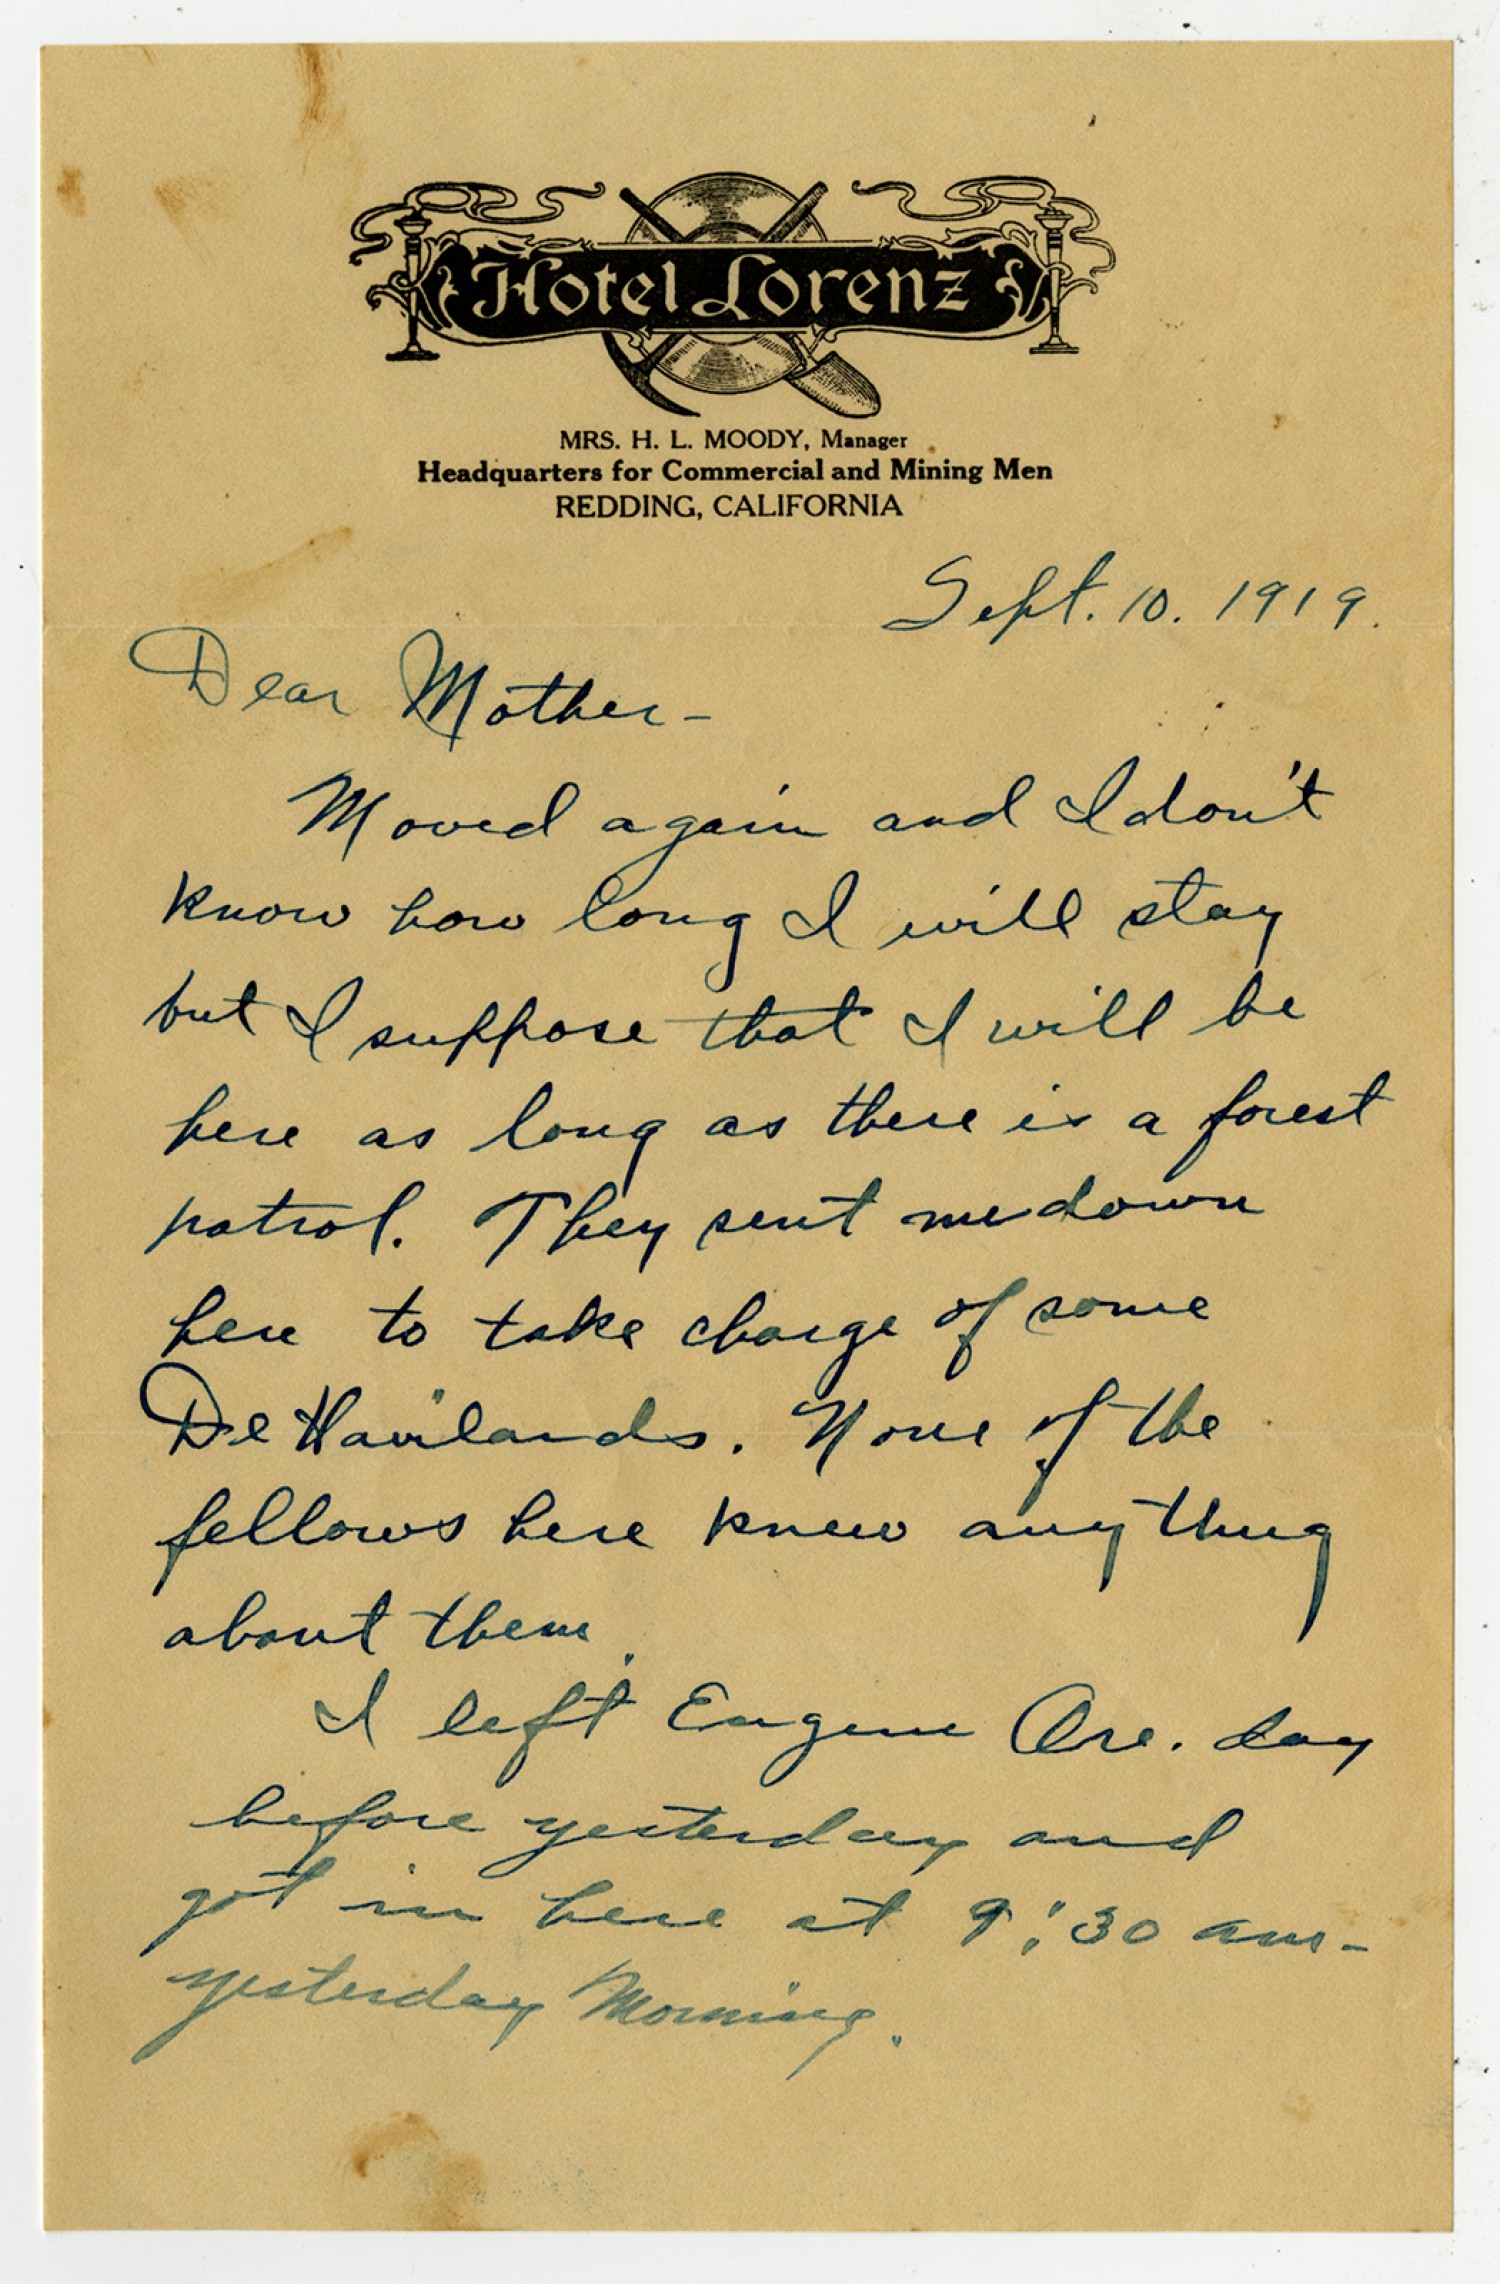 Hotel Lorenz
MRS. H. L. MOODY, Manager
Headquarters for Commercial and Mining Men
REDDING, CALIFORNIA
Sept. 10. 1919.
Dear Mother-
Moved again and I don't
know how long I will stay
but I suppose that I will be
here as long as there is a forest
patrol. They sent me down
here to take charge of some
De Havilands. None of the
fellows here knew anything
about them.
I left Eugene Ore. day
before yesterday and
got in here at 9:30 am-
yesterday Morning.